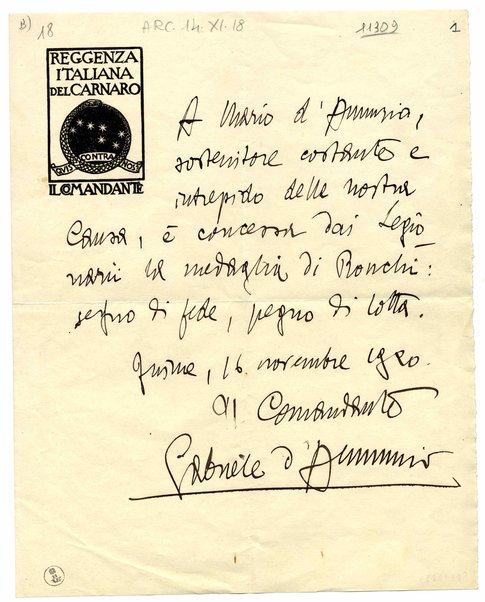 B) 18 ARC. 14. XI. 18 11309 1
REGGENZA
ITALIANA
DEL CARNARO
QUIS CONTRA NOS
IL COMANDANTE
A Mario d'Annunzio,
sostenitore costante e
intrepido della nostra
Causa, è concessa dai Legio
narii la medaglia di Ronchi:
segno di fede, pegno di lotta.
Fiume, 16 novembre 1920.
Il Comandante
Gabriele d'Annunzio